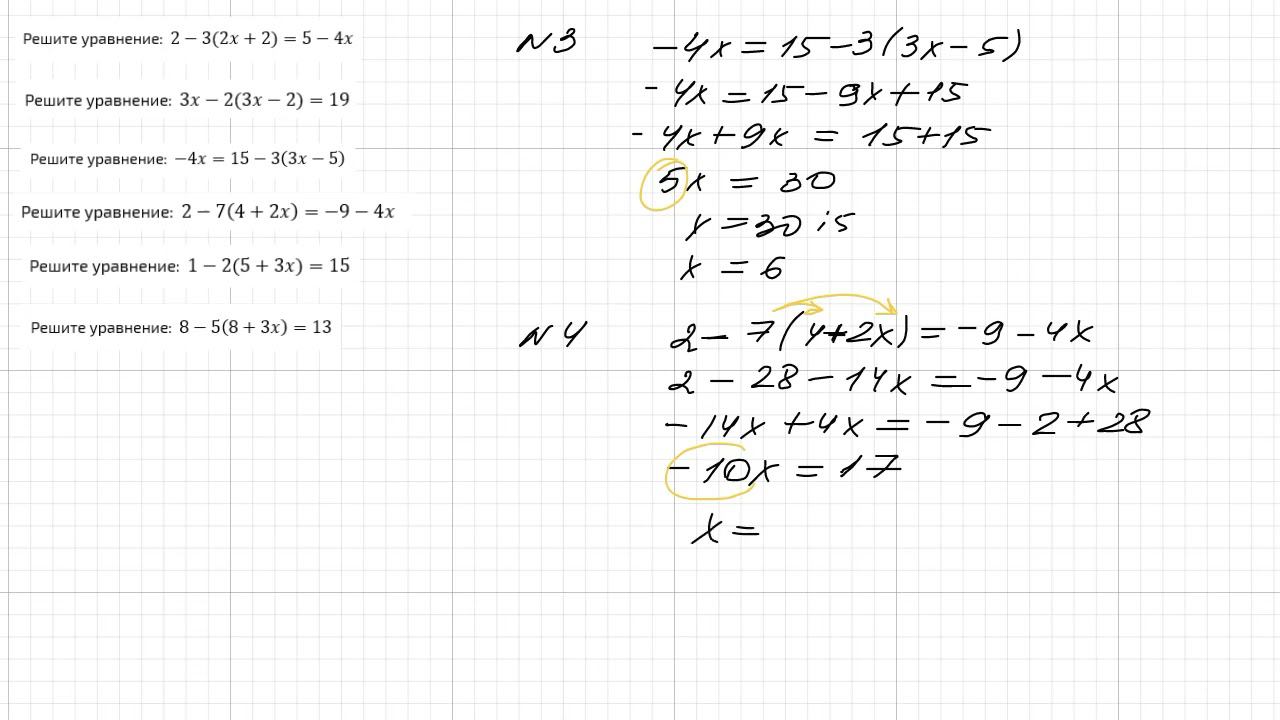 Решите уравнение: 2 − 3(2x + 2) = 5 − 4x
Решите уравнение: 3x − 2(3x − 2) = 19
Решите уравнение: −4x = 15 − 3(3x − 5)
Решите уравнение: 2 − 7(4 + 2x) = −9 − 4x
Решите уравнение: 1 − 2(5 + 3x) = 15
Решите уравнение: 8 − 5(8 + 3x) = 13
N3
−4x = 15 − 3(3x − 5)
−4x = 15 − 9x + 15
−4x + 9x = 15 + 15
5x = 30
x = 30 : 5
x = 6
N4
2 − 7(4 + 2x) = −9 − 4x
2 − 28 − 14x = −9 − 4x
−14x + 4x = −9 − 2 + 28
−10x = 17
x =